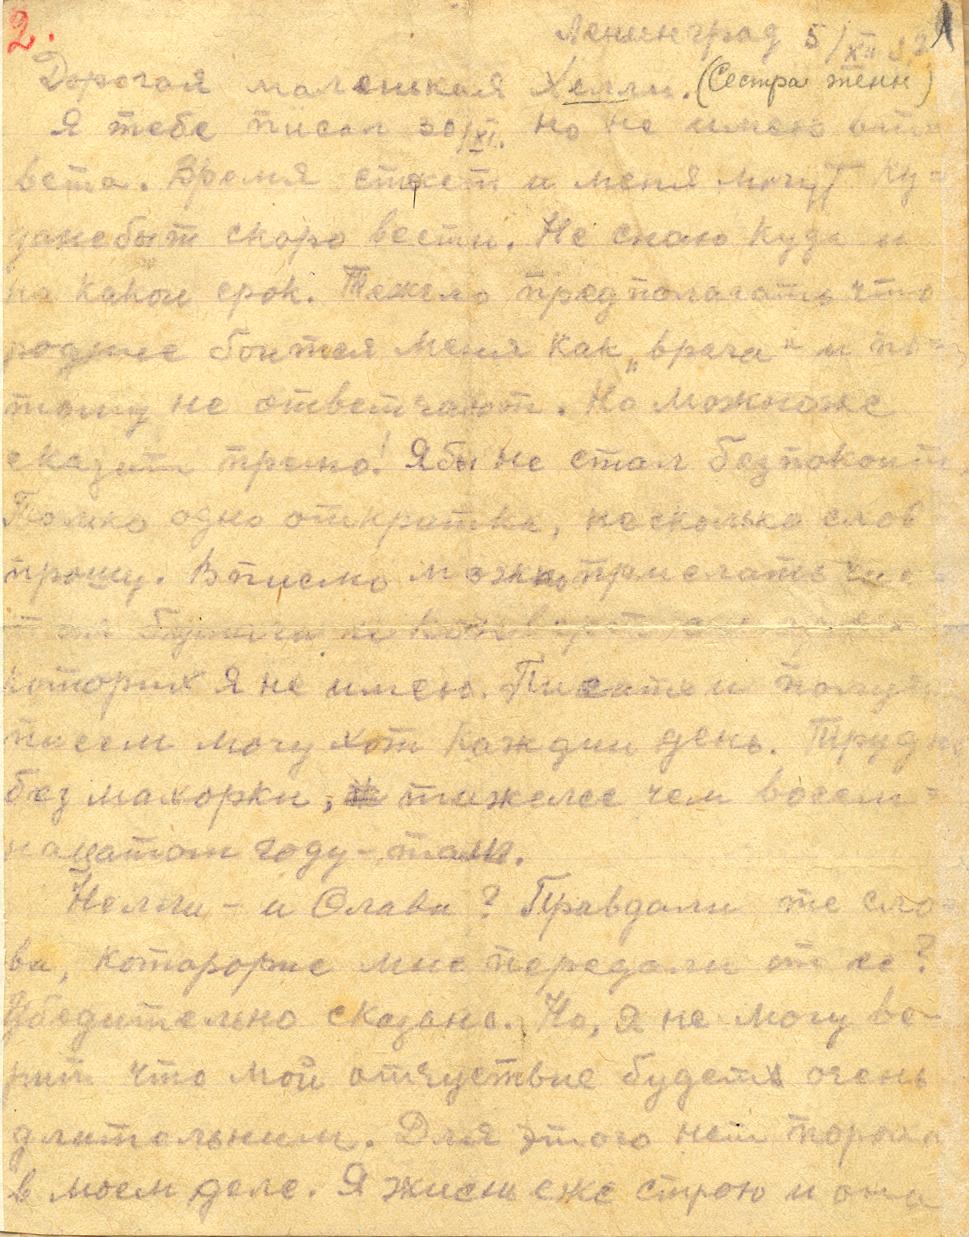 2.
Ленинград 5/XII
Дорогая маленькая Хелли. (Сестра жени)
Я тебе писал 30/XI. но не имею отт=
вета. Время стжет и меня могут ку=
данебыт скоро вести. Не снаю куда и
на какои срок. Тежело предполагать что
родние боится меня как „врага" и по=
тому не ответчают. Но можноже
сказать прямо! Я бы не стал безпокоит,
Толко одно откритка, несколько слов
прошу. В писмо можно прислать
бумаги и
которих я не имею. Писать и получ
писем могу хот каждии день. Трудно
без махорки, тижелее чем восем=
нацатом году – там.
Нелли – и Слава? Правдали те сло-
ва, котарорие мне передали от ее?
Убедительно сказано. Но, я не могу ве-
рит что мой отчуствие будет очень
длительним. Для этого нет пороха
в моем деле. Я жиснь еже строю и она